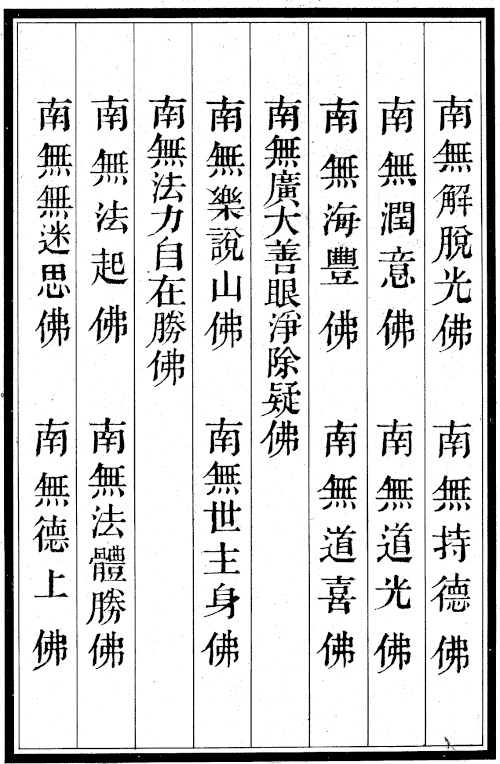 南無解脫光佛　南無持德佛
南無潤意佛　南無道光佛
南無海豐佛　南無道喜佛
南無廣大善眼淨除疑佛
南無樂說山佛　南無世主身佛
南無法力自在勝佛
南無法起佛　南無法體勝佛
南無無迷思佛　南無德上佛